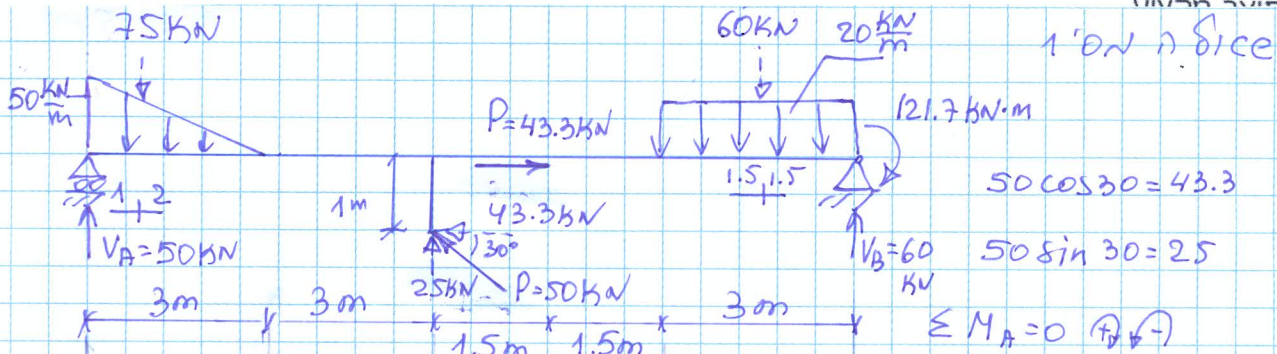 75KN
60KN
20 KN/m
שאלה מס' 1
50 KN/m
P=43.3KN
121.7 KN·m
1 2
1m
43.3KN
1.5 1.5
50 cos 30 = 43.3
30°
V_A=50KN
V_B=60 KN
50 sin 30 = 25
25KN
P=50KN
3m 3m 3m
1.5m 1.5m
Σ M_A=0 (+ -)